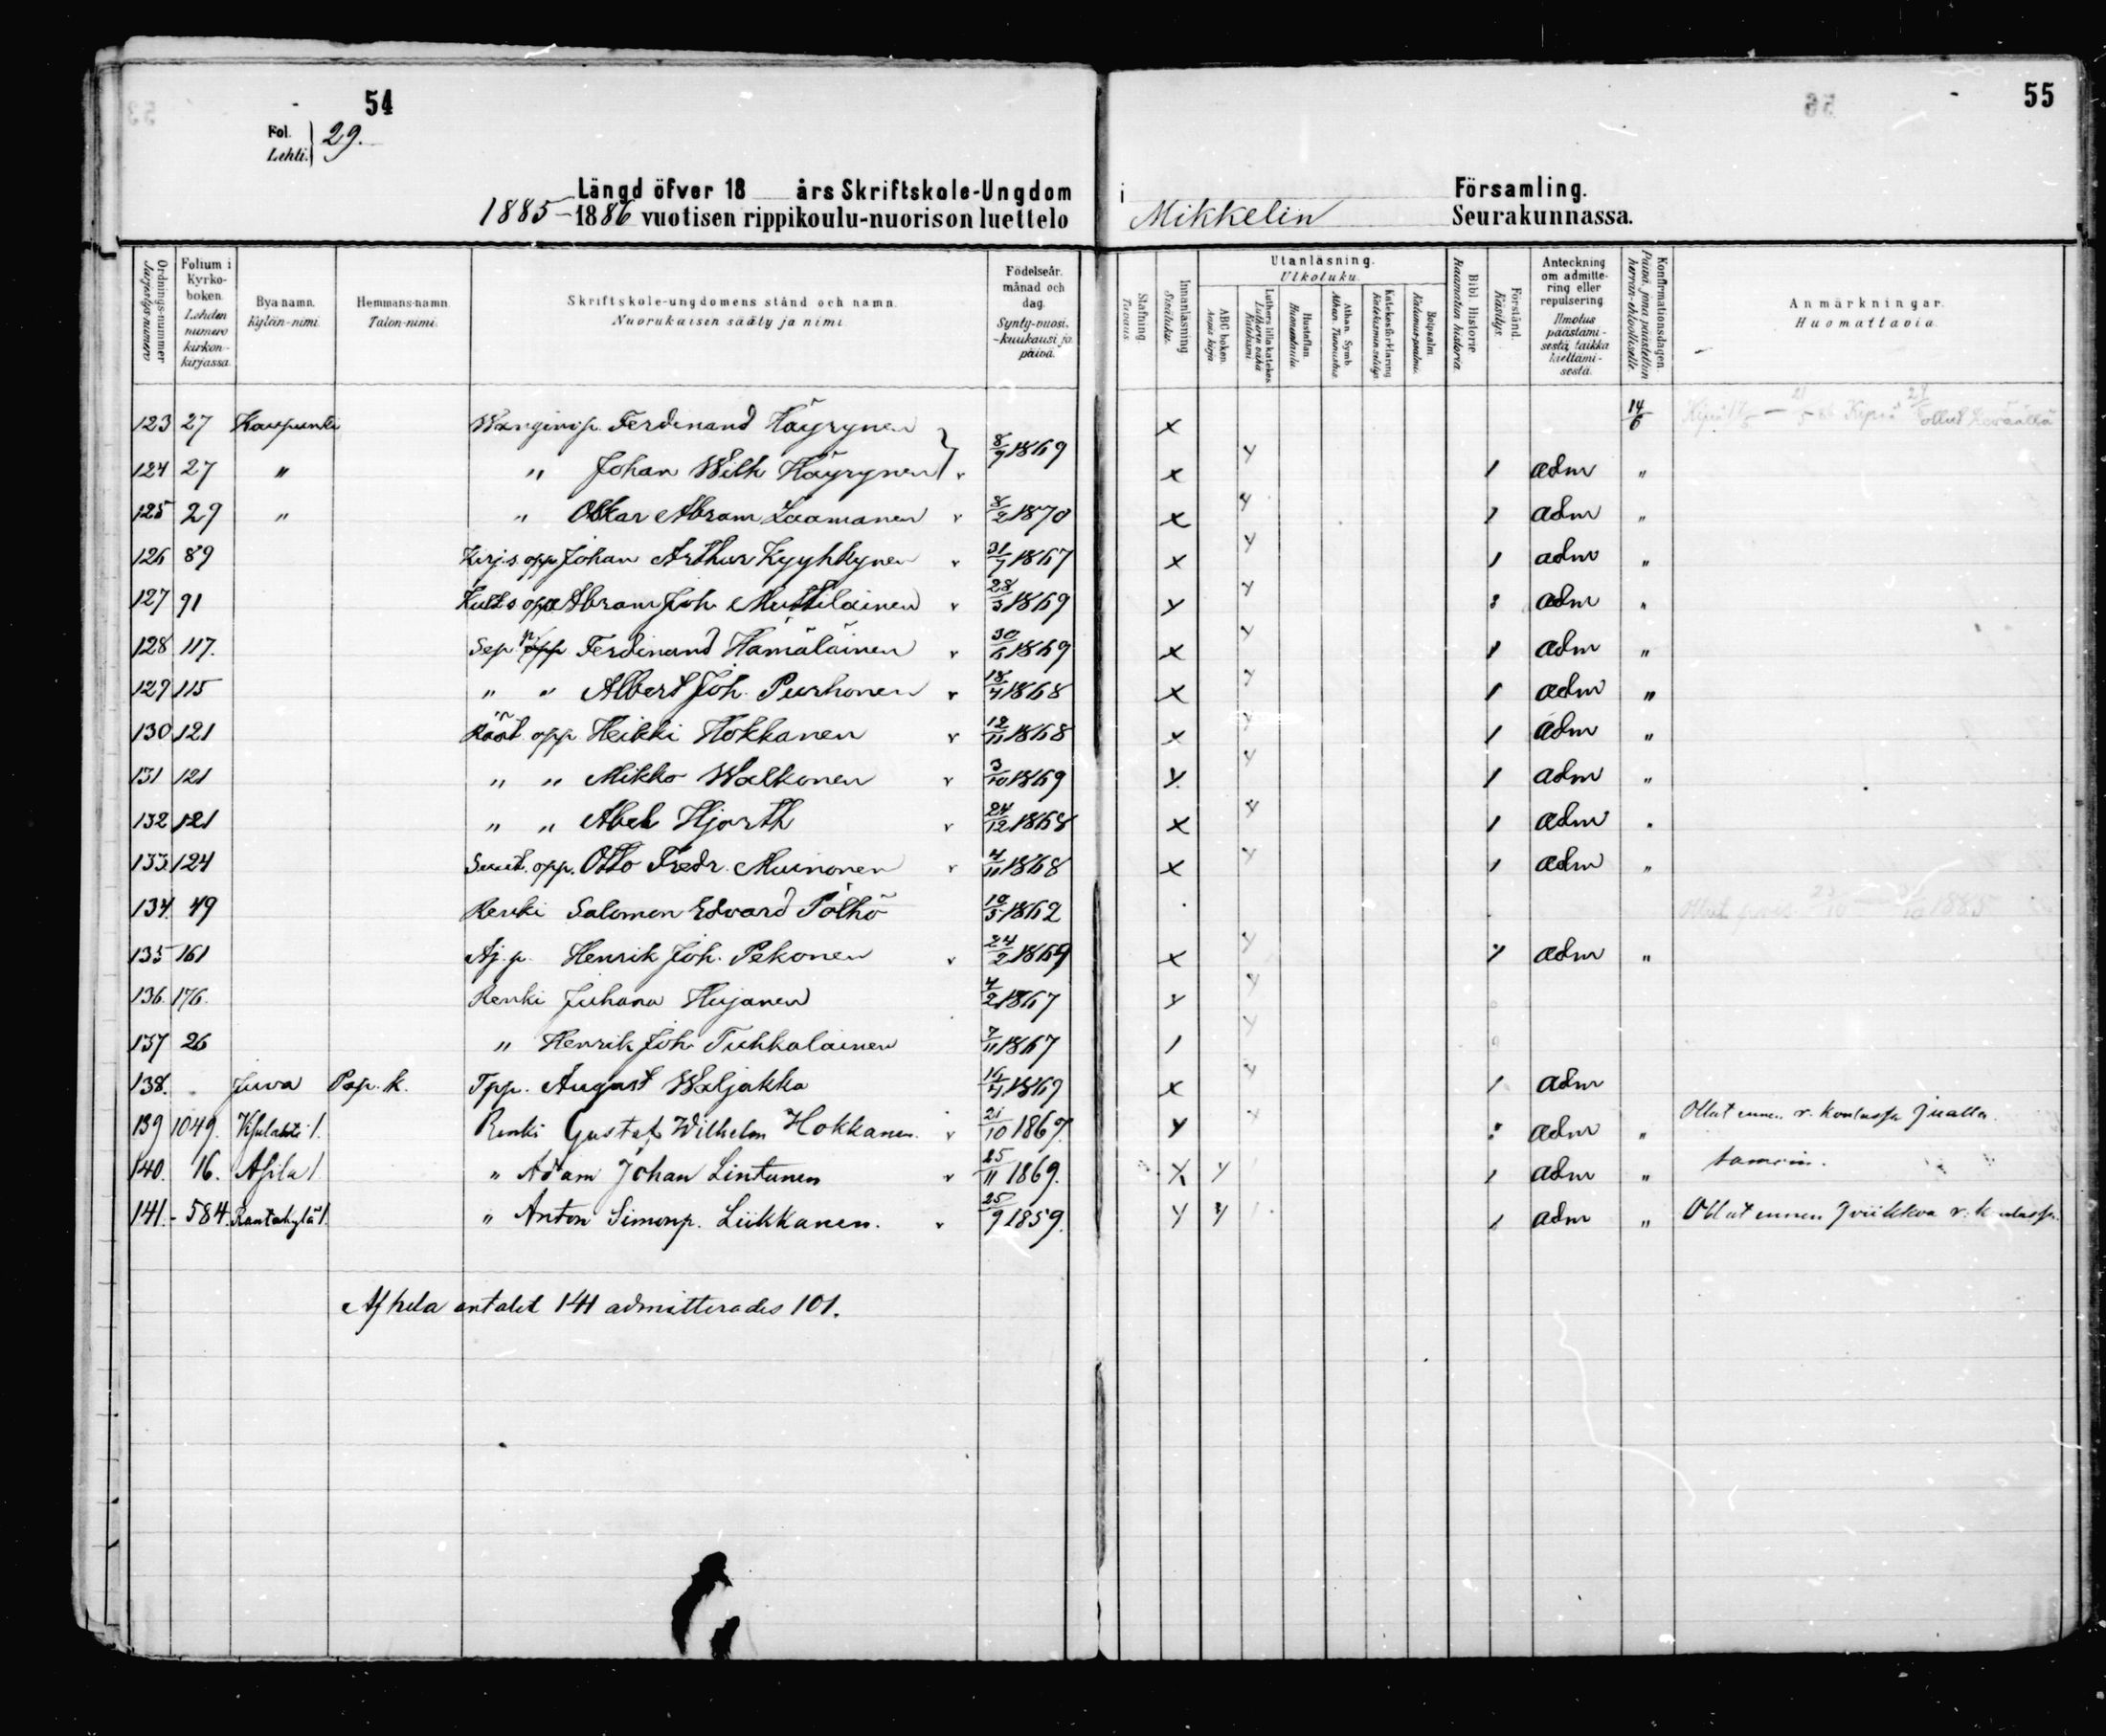 54
Fol. Lehti. 29.
Längd öfver 18 års Skriftskole-Ungdom
1885–1886 vuotisen rippikoulu-nuorison luettelo
Ordnings-nummer Järjestys-numero
Folium i Kyrko-boken. Lehden numero kirkon-kirjassa.
Bya namn. Kylän-nimi.
Hemmans-namn. Talon-nimi.
Skriftskole-ungdomens stånd och namn. Nuorukaisen sääty ja nimi.
Födelseår, månad och dag. Synty-vuosi, -kuukausi ja päivä.
123 27 Kaupunki Wanginp. Ferdinand Häyrynen
124 27 " " Johan Wilh Häyrynen 8/7 1869
125 29 " " Oskar Abram Laamanen 8/2 1870
126 89 Kirjs opp Johan Arthur Kyyhkynen 31/7 1867
127 91 Kults opp Abram Joh Muttilainen 28/3 1869
128 117. Sep p Ferdinand Hämäläinen 30/6 1869
129 115 " " Albert Joh. Purhonen 18/4 1868
130 121 Räät opp Heikki Hokkanen 12/11 1868
131 121 " " Mikko Walkonen 3/10 1869
132 121 " " Abel Hjorth 24/12 1868
133 124 Suut. opp. Otto Fredr. Muinonen 4/11 1868
134. 49 Renki Salomon Edvard Pölhö 10/5 1862
135 161 Aj. p. Henrik Joh. Pekonen 24/2 1869
136. 176. Renki Juhana Hujanen 4/2 1867
137 26 " Henrik Joh Tuhkalainen 7/11 1867
138. Juva Pap. k. Tpp. August Waljakka 16/4 1869
139 1049. Visulahti l. Renki Gustaf Wilhelm Hokkanen. 21/10 1869.
140. 16. Asila l. " Adam Johan Lintunen 25/11 1869.
141. - 584. Rantakylä l. " Anton Simonp. Liikkanen. 25/9 1859.
Af hela antalet 141 admitterades 101.
55
i Församling.
Mikkelin Seurakunnassa.
Stafning. Tavaus.
Innanläsning Sisäluku.
Utanläsning. Ulkoluku.
ABC boken. Aapis kirja
Luthers lilla katekes Lutherin vähä Katekismi
Hustaflan. Huoneentaulu.
Athan. Symb Athan. Tunnustus.
Katekesförklaring Katekismin selitys
Botpsalm. Katumus-psalmi.
Bibl Historie Raamatun historia.
Förstånd. Käsitys.
Anteckning om admittering eller repulsering Ilmotus päästämi-sestä taikka kieltämi-sestä.
Konfirmationsdagen. Päivä, jona päästettiin herran-ehtoolliselle.
Anmärkningar. Huomattavia.
x 14/6
x y 1 adm "
x y 1 adm "
x y 1 adm "
y y adm "
x y 1 adm "
x y 1 adm "
x y 1 adm "
y. y 1 adm "
x y 1 adm "
x y 1 adm "
x y y adm "
y y
1 y
x y 1 adm
y y adm " Ollut ennen r. koulussa
x y 1 adm "
y y 1 adm " Ollut ennen 9 viikkoa r. koulussa.